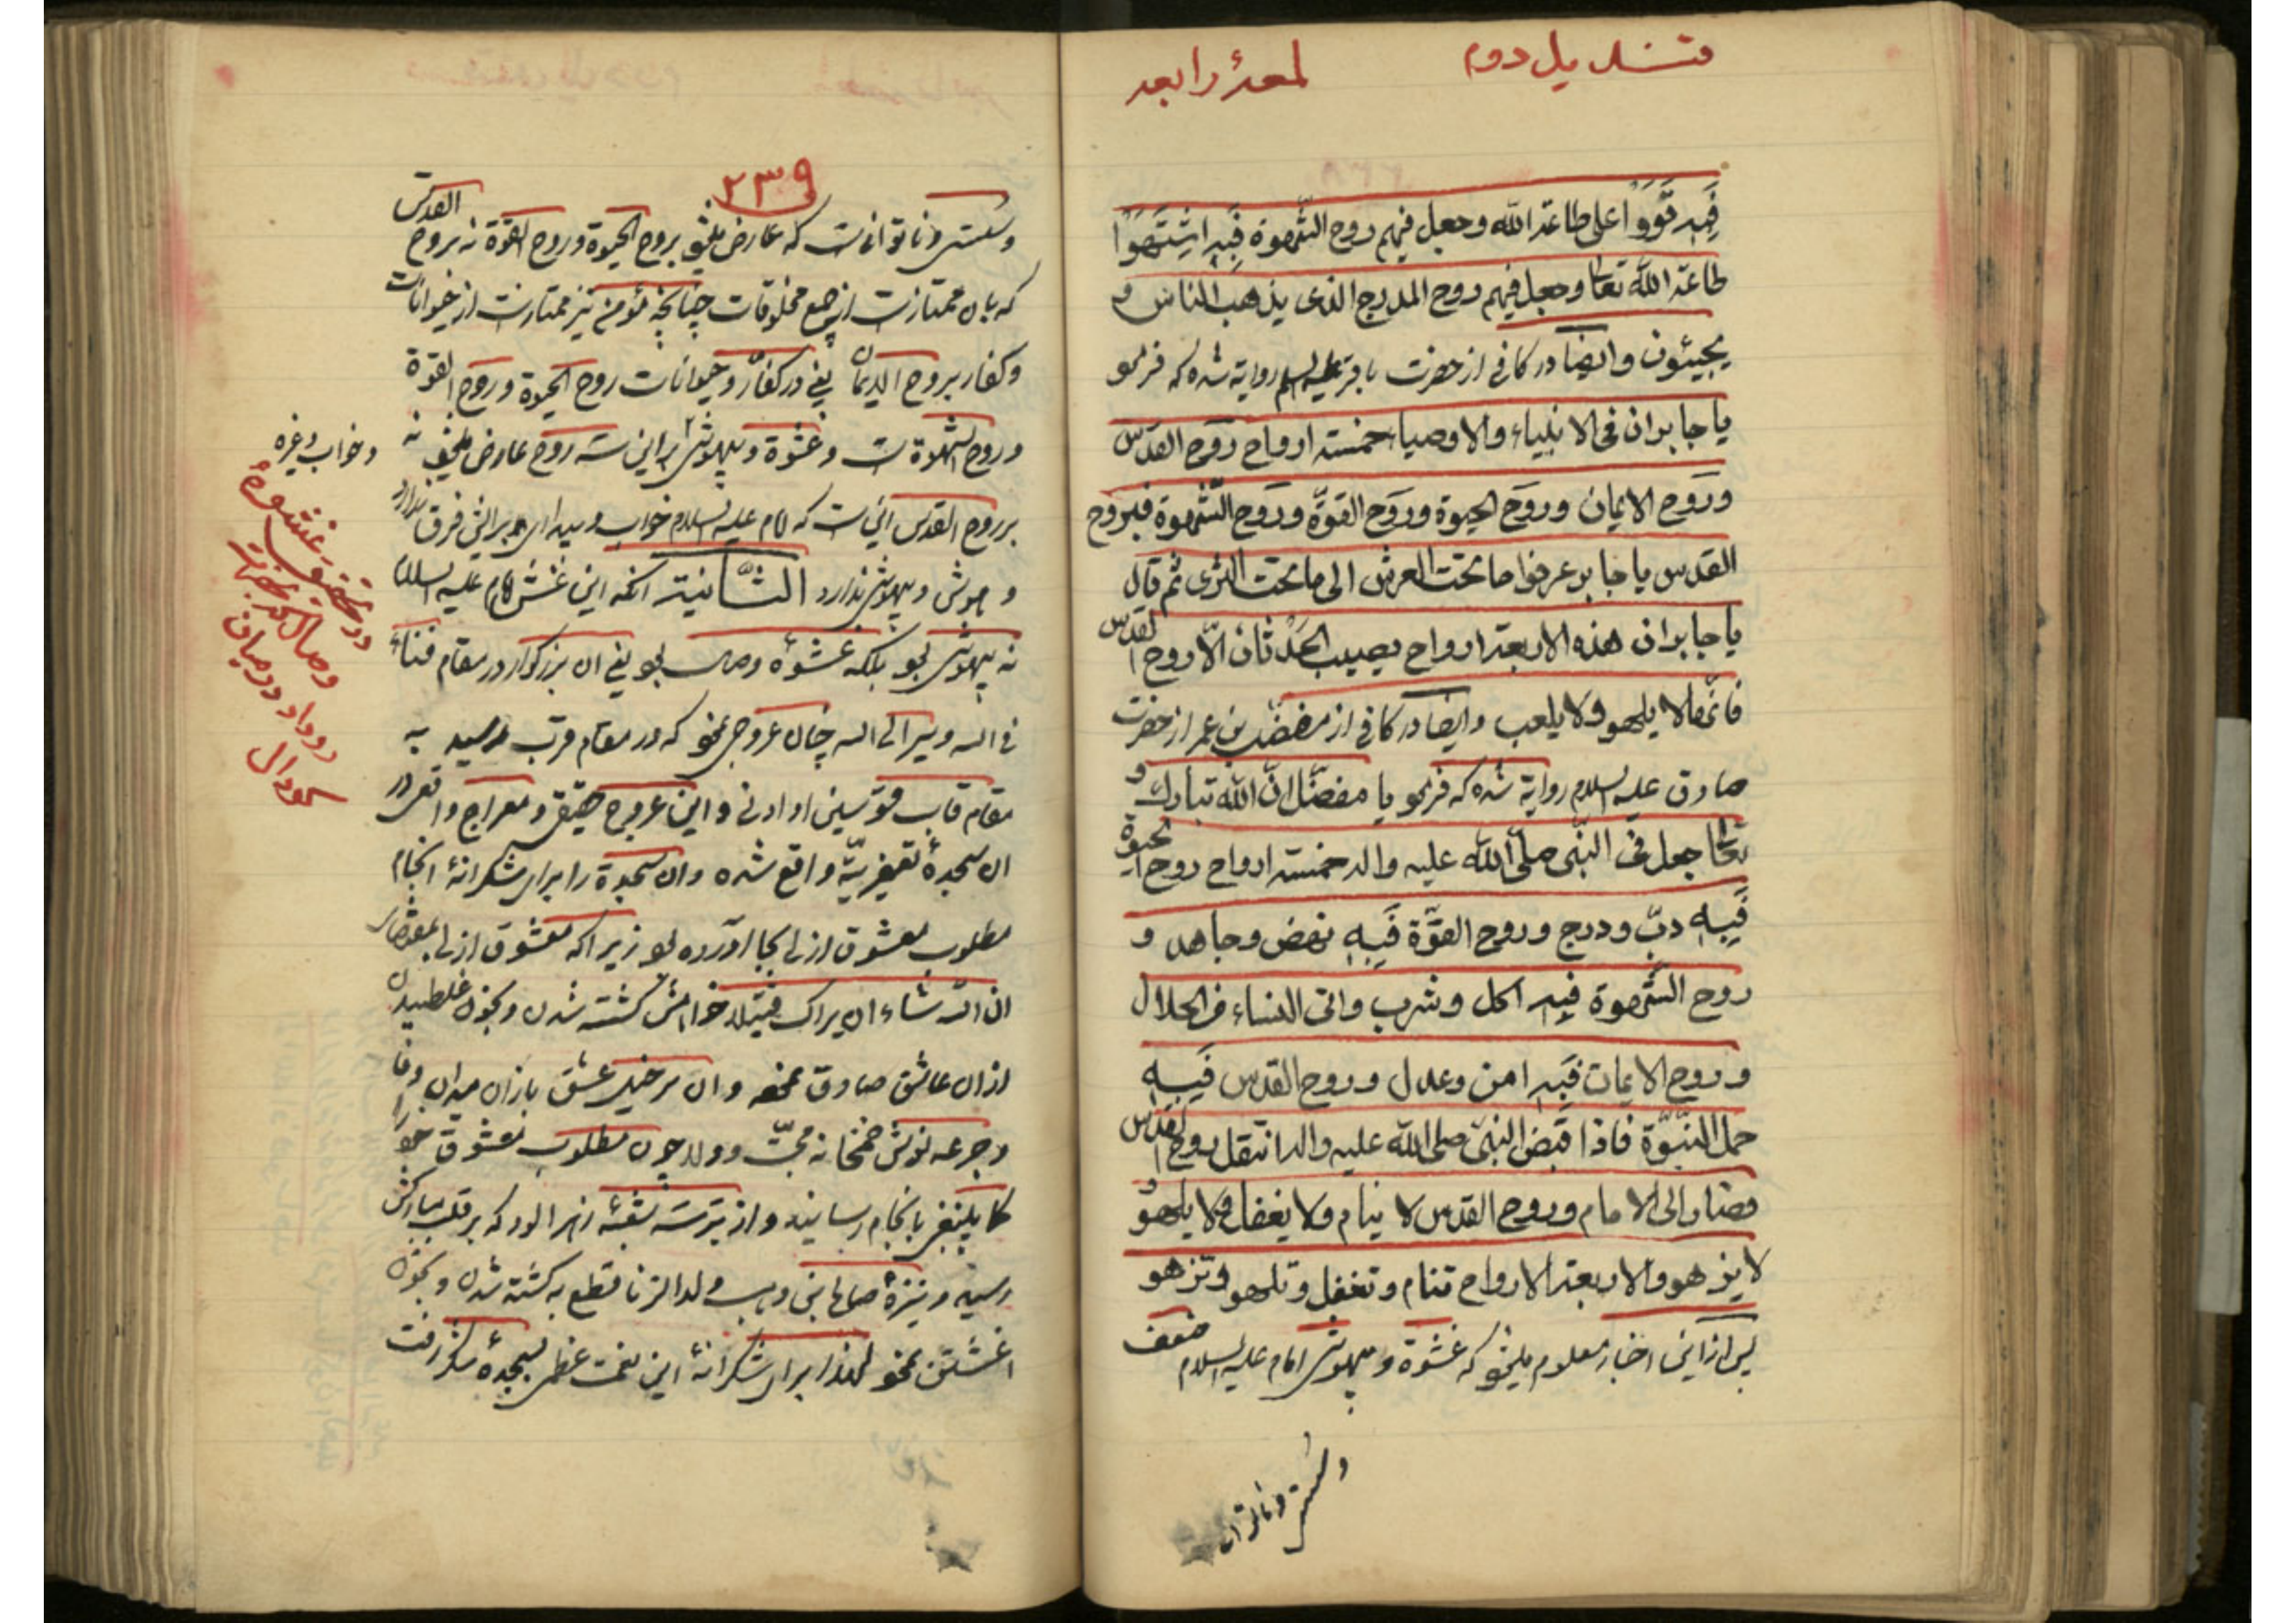 قندیل دوم
لمعۀ رابعه
فَبِه قَوَوا علی طاعة الله وجعل فیهم روح الشّهوة فَبِه اشتَهَوا
طاعة الله تعا وجعل فیهم روح المدرج الذی یذهب الناس و
یجیئون وایضا در کافی از حضرت باقر علیه السلم روایة شده که فرمو
یا جابر ان فی الانبیاء والاوصیاء خمسة ارواح روح القدس
وروح الایمان وروح الحیوة وروح القوّة وروح الشّهوة فبروح
القدس یا جابر عرفوا ما تحت العرش الی ما تحت الثری ثم قال
یا جابر ان هذه الاربعة ارواح یصیب الحدثان الّا روح القدس
فانّها لا یلهو ولا یلعب وایضا در کافی از مفضل بن عمر از حضرت
صادق علیه السلام روایة شده که فرمو یا مفضّل انّ الله تبارک و
تعا جعل فی النّبی صلی الله علیه واله خمسة ارواح روح الحیوة
فَبِه دبّ ودرج وروح القوّة فَبِه نهض وجاهد و
روح الشّهوة فبه اکل وشرب واتی النساء من الحلال
وروح الایمان فَبِه امن وعدل وروح القدس فَبِه
حمل النّبوّة فاذا قبض النبیّ صلی الله علیه واله انتقل روح القدس
فصار الی الامام وروح القدس لا ینام ولا یغفل ولا یلهو و
لا یزهو والاربعة الارواح تنام وتغفل وتلهو وتزهو
پس از این اخبار معلوم میشو که غشوة و بیهوشی امام علیه السلام ضعف
وسستی وناتوان
۲۳۹
وسستی وناتوانیست که عارض میشو بروح الحیوة وروح القوة نه بروح القدس
که بان ممتازست از جمیع مخلوقات چنانچه مؤمن نیز ممتازست از حیوانات
وکفار بروح الایمان یعنی در کفار وحیوانات روح الحیوة وروح القوة
وروح الشهوة ست وغشوة وبیهوشی بر این سه روح عارض میشو نه
بر روح القدس اینست که امام علیه السلام خواب وبیداری برایش فرق ندارد
وهوش وبیهوشی ندارد الثّانیة انکه این غشش امام علیه السلام
نه بیهوشی بو بلکه غشوۀ وصال بو یعنی ان بزرگوار در مقام فناء
فی الله وسیر الی الله چنان عروجی نمو که در مقام قرب رسید به
مقام قاب قوسین او ادنی واین عروج حقیقی ومعراج واقعی در
ان سجدۀ واقع شده وان سجدة را برای شکرانۀ انجام
مطلوب معشوق ازلی بجا اورده بو زیرا که معشوق ازلی بمقتضای
ان الله شاء ان یراک قتیلا خواهش کشته شدن وبخون غلطیدن
از ان عاشق صادق نمو وان سرخیل عشق بازان میدان وفا
وجرعه نوش خمخانه محبّت وولا چون مطلوب معشوق خو را
کما ینبغی بانجام رسانید واز تیر سه شعبۀ زهرالود که بر قلب مبارکش
رسید ونیزۀ صالح ابن وهب ولد الزنا قطع به کشته شدن وبخون
اغشتن نمو لهذا برای شکرانۀ این نعمت عظمی بسجدۀ شکر رفت
وخواب وغیره
در تحقیق غشوۀ
وصال که بحضرت
روداد در میان
گودال